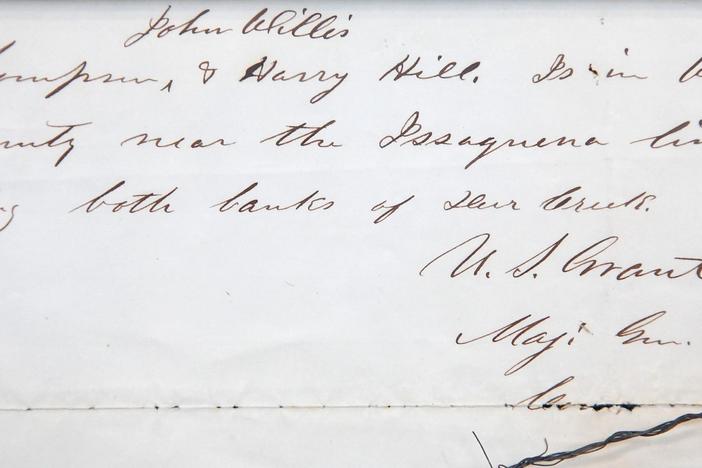 John Willis
ompson, & Harry Hill. Is in
unty near the Issaquena lin
g both banks of Deer Creek.
U. S. Grant
Maj. Gen.
Com